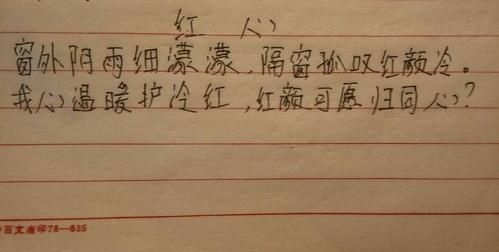 红 心
窗外阴雨细濛濛，隔窗孤叹红颜冷。
我心温暖护冷红，红颜可愿归同心？
百文商印78—635